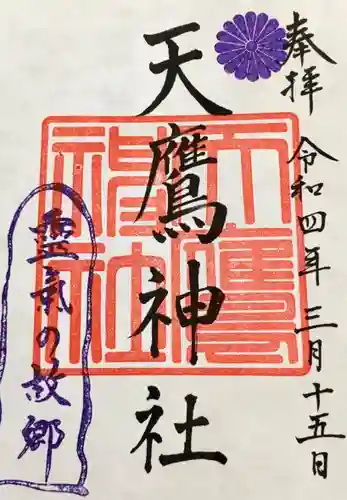 奉拝
令和四年三月十五日
天鷹神社
天鷹神社
靈氣の故郷